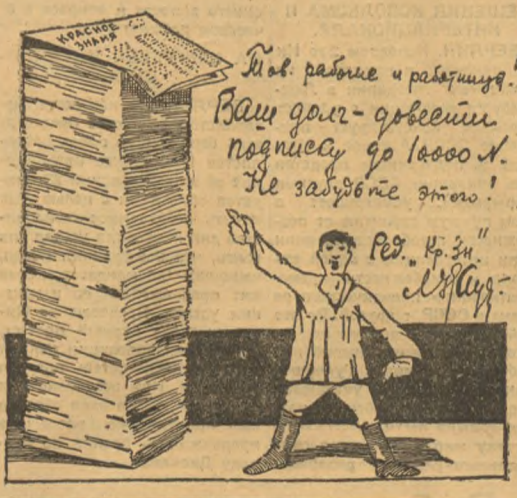 КРАСНОЕ
ЗНАМЯ
Тов. рабочие и работницы!
Ваш долг - довести
подписку до 10000 N.
Не забудьте этого!
Ред. „Кр. Зн."